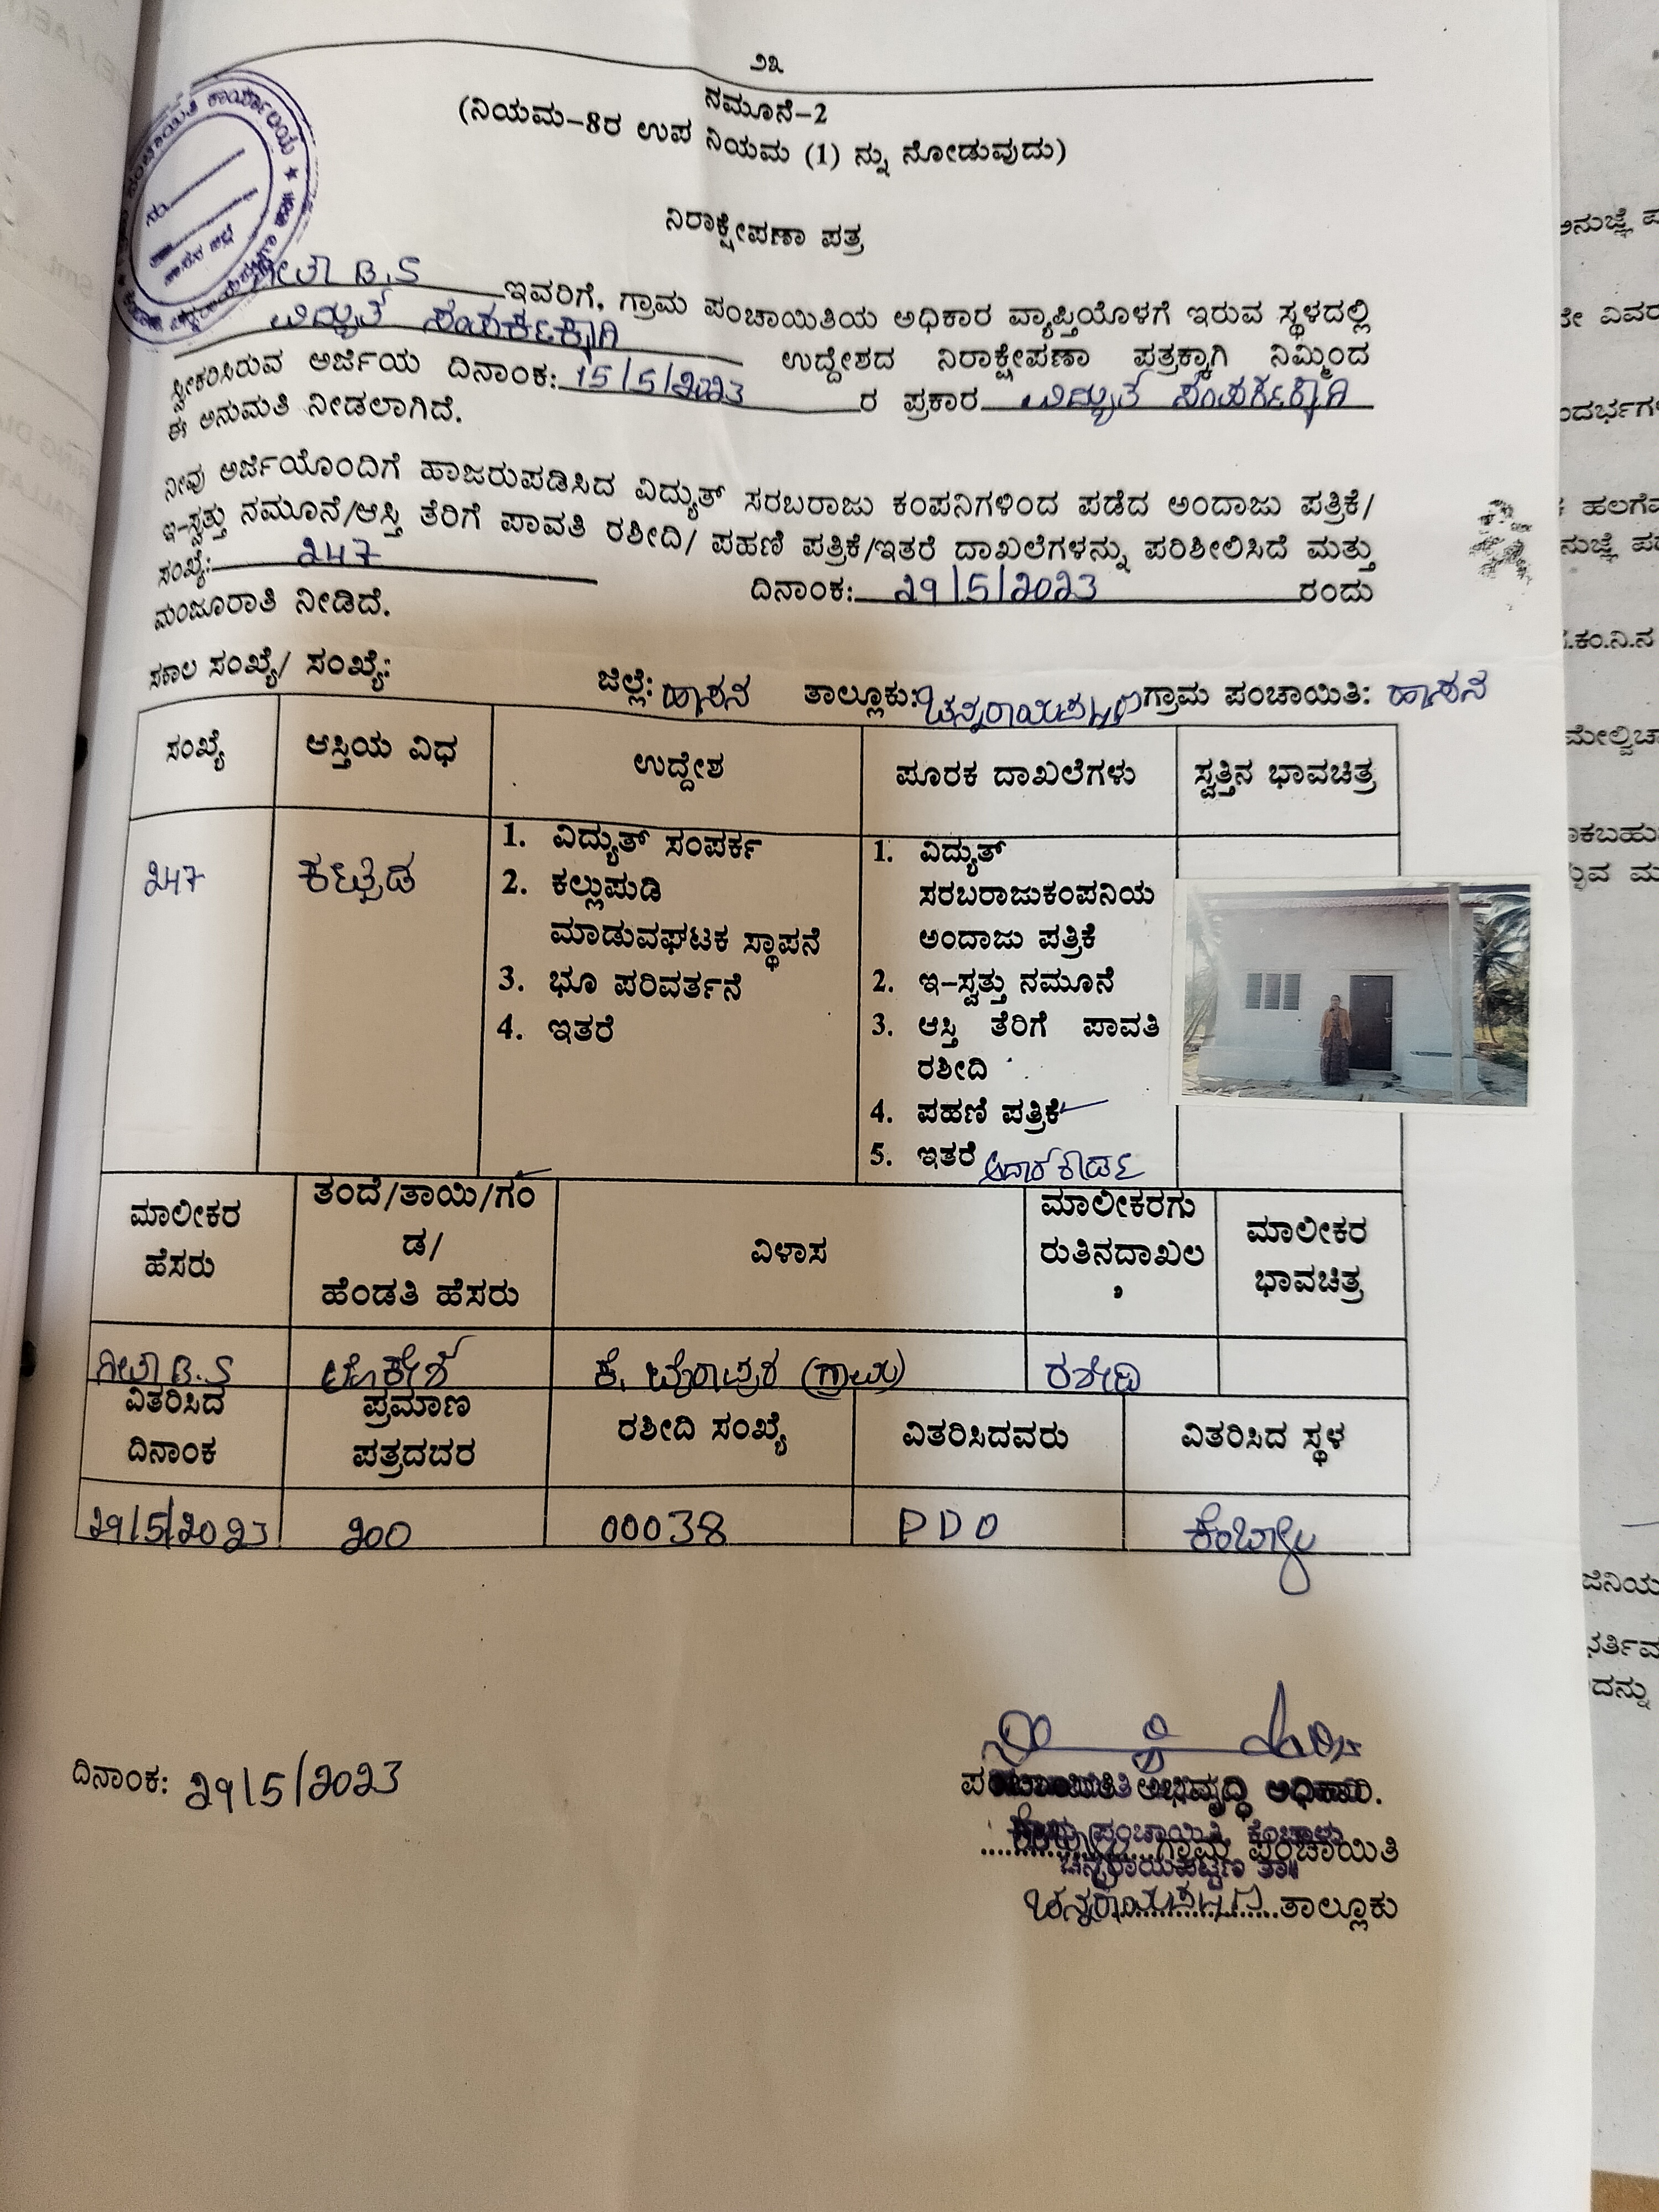 ೨೩
ನಮೂನೆ-2
(ನಿಯಮ-8ರ ಉಪ ನಿಯಮ (1) ನ್ನು ನೋಡುವುದು)
ನಿರಾಕ್ಷೇಪಣಾ ಪತ್ರ
ಗೀತಾ B.S ಇವರಿಗೆ, ಗ್ರಾಮ ಪಂಚಾಯಿತಿಯ ಅಧಿಕಾರ ವ್ಯಾಪ್ತಿಯೊಳಗೆ ಇರುವ ಸ್ಥಳದಲ್ಲಿ
ವಿದ್ಯುತ್ ಸಂಪರ್ಕಕ್ಕಾಗಿ ಉದ್ದೇಶದ ನಿರಾಕ್ಷೇಪಣಾ ಪತ್ರಕ್ಕಾಗಿ ನಿಮ್ಮಿಂದ
ಸ್ವೀಕರಿಸಿರುವ ಅರ್ಜಿಯ ದಿನಾಂಕ: 15/5/2023 ರ ಪ್ರಕಾರ ವಿದ್ಯುತ್ ಸಂಪರ್ಕಕ್ಕಾಗಿ
ಈ ಅನುಮತಿ ನೀಡಲಾಗಿದೆ.
ನೀವು ಅರ್ಜಿಯೊಂದಿಗೆ ಹಾಜರುಪಡಿಸಿದ ವಿದ್ಯುತ್ ಸರಬರಾಜು ಕಂಪನಿಗಳಿಂದ ಪಡೆದ ಅಂದಾಜು ಪತ್ರಿಕೆ/
ಇ-ಸ್ವತ್ತು ನಮೂನೆ/ಆಸ್ತಿ ತೆರಿಗೆ ಪಾವತಿ ರಶೀದಿ/ ಪಹಣಿ ಪತ್ರಿಕೆ/ಇತರೆ ದಾಖಲೆಗಳನ್ನು ಪರಿಶೀಲಿಸಿದೆ ಮತ್ತು
ಸಂಖ್ಯೆ: 247 ದಿನಾಂಕ: 29/5/2023 ರಂದು
ಮಂಜೂರಾತಿ ನೀಡಿದೆ.
ಸಕಾಲ ಸಂಖ್ಯೆ/ ಸಂಖ್ಯೆ: ಜಿಲ್ಲೆ: ಹಾಸನ ತಾಲ್ಲೂಕು: ಚನ್ನರಾಯಪಟ್ಟಣ ಗ್ರಾಮ ಪಂಚಾಯಿತಿ: ಹಾಸನ
ಸಂಖ್ಯೆ ಆಸ್ತಿಯ ವಿಧ ಉದ್ದೇಶ ಪೂರಕ ದಾಖಲೆಗಳು ಸ್ವತ್ತಿನ ಭಾವಚಿತ್ರ
247 ಕಟ್ಟಡ
1. ವಿದ್ಯುತ್ ಸಂಪರ್ಕ
2. ಕಲ್ಲುಪುಡಿ
ಮಾಡುವಘಟಕ ಸ್ಥಾಪನೆ
3. ಭೂ ಪರಿವರ್ತನೆ
4. ಇತರೆ
1. ವಿದ್ಯುತ್
ಸರಬರಾಜುಕಂಪನಿಯ
ಅಂದಾಜು ಪತ್ರಿಕೆ
2. ಇ-ಸ್ವತ್ತು ನಮೂನೆ
3. ಆಸ್ತಿ ತೆರಿಗೆ ಪಾವತಿ
ರಶೀದಿ
4. ಪಹಣಿ ಪತ್ರಿಕೆ
5. ಇತರೆ
ಮಾಲೀಕರ
ಹೆಸರು
ತಂದೆ/ತಾಯಿ/ಗಂ
ಡ/
ಹೆಂಡತಿ ಹೆಸರು
ವಿಳಾಸ
ಮಾಲೀಕರಗು
ರುತಿನದಾಖಲ
ೆ
ಮಾಲೀಕರ
ಭಾವಚಿತ್ರ
ಗೀತಾ B.S ಲೋಕೇಶ್ ಕೆ. ಬೈರಾಪುರ (ಗ್ರಾಮ) ರಶೀದಿ
ವಿತರಿಸಿದ
ದಿನಾಂಕ
ಪ್ರಮಾಣ
ಪತ್ರದದರ
ರಶೀದಿ ಸಂಖ್ಯೆ
ವಿತರಿಸಿದವರು
ವಿತರಿಸಿದ ಸ್ಥಳ
29/5/2023 200 00038 PDO ಕೆಂಬಾಳು
ದಿನಾಂಕ: 29/5/2023
ಪಂಚಾಯಿತಿ ಅಭಿವೃದ್ಧಿ ಅಧಿಕಾರಿ.
ಗ್ರಾಮ ಪಂಚಾಯಿತಿ
ಚನ್ನರಾಯಪಟ್ಟಣ ತಾ॥
ಚನ್ನರಾಯಪಟ್ಟಣ ತಾಲ್ಲೂಕು